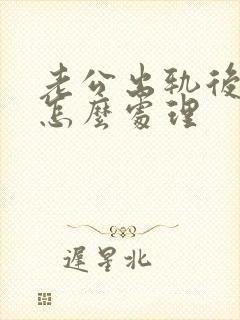 老公出轨後
怎麼處理
遲星北